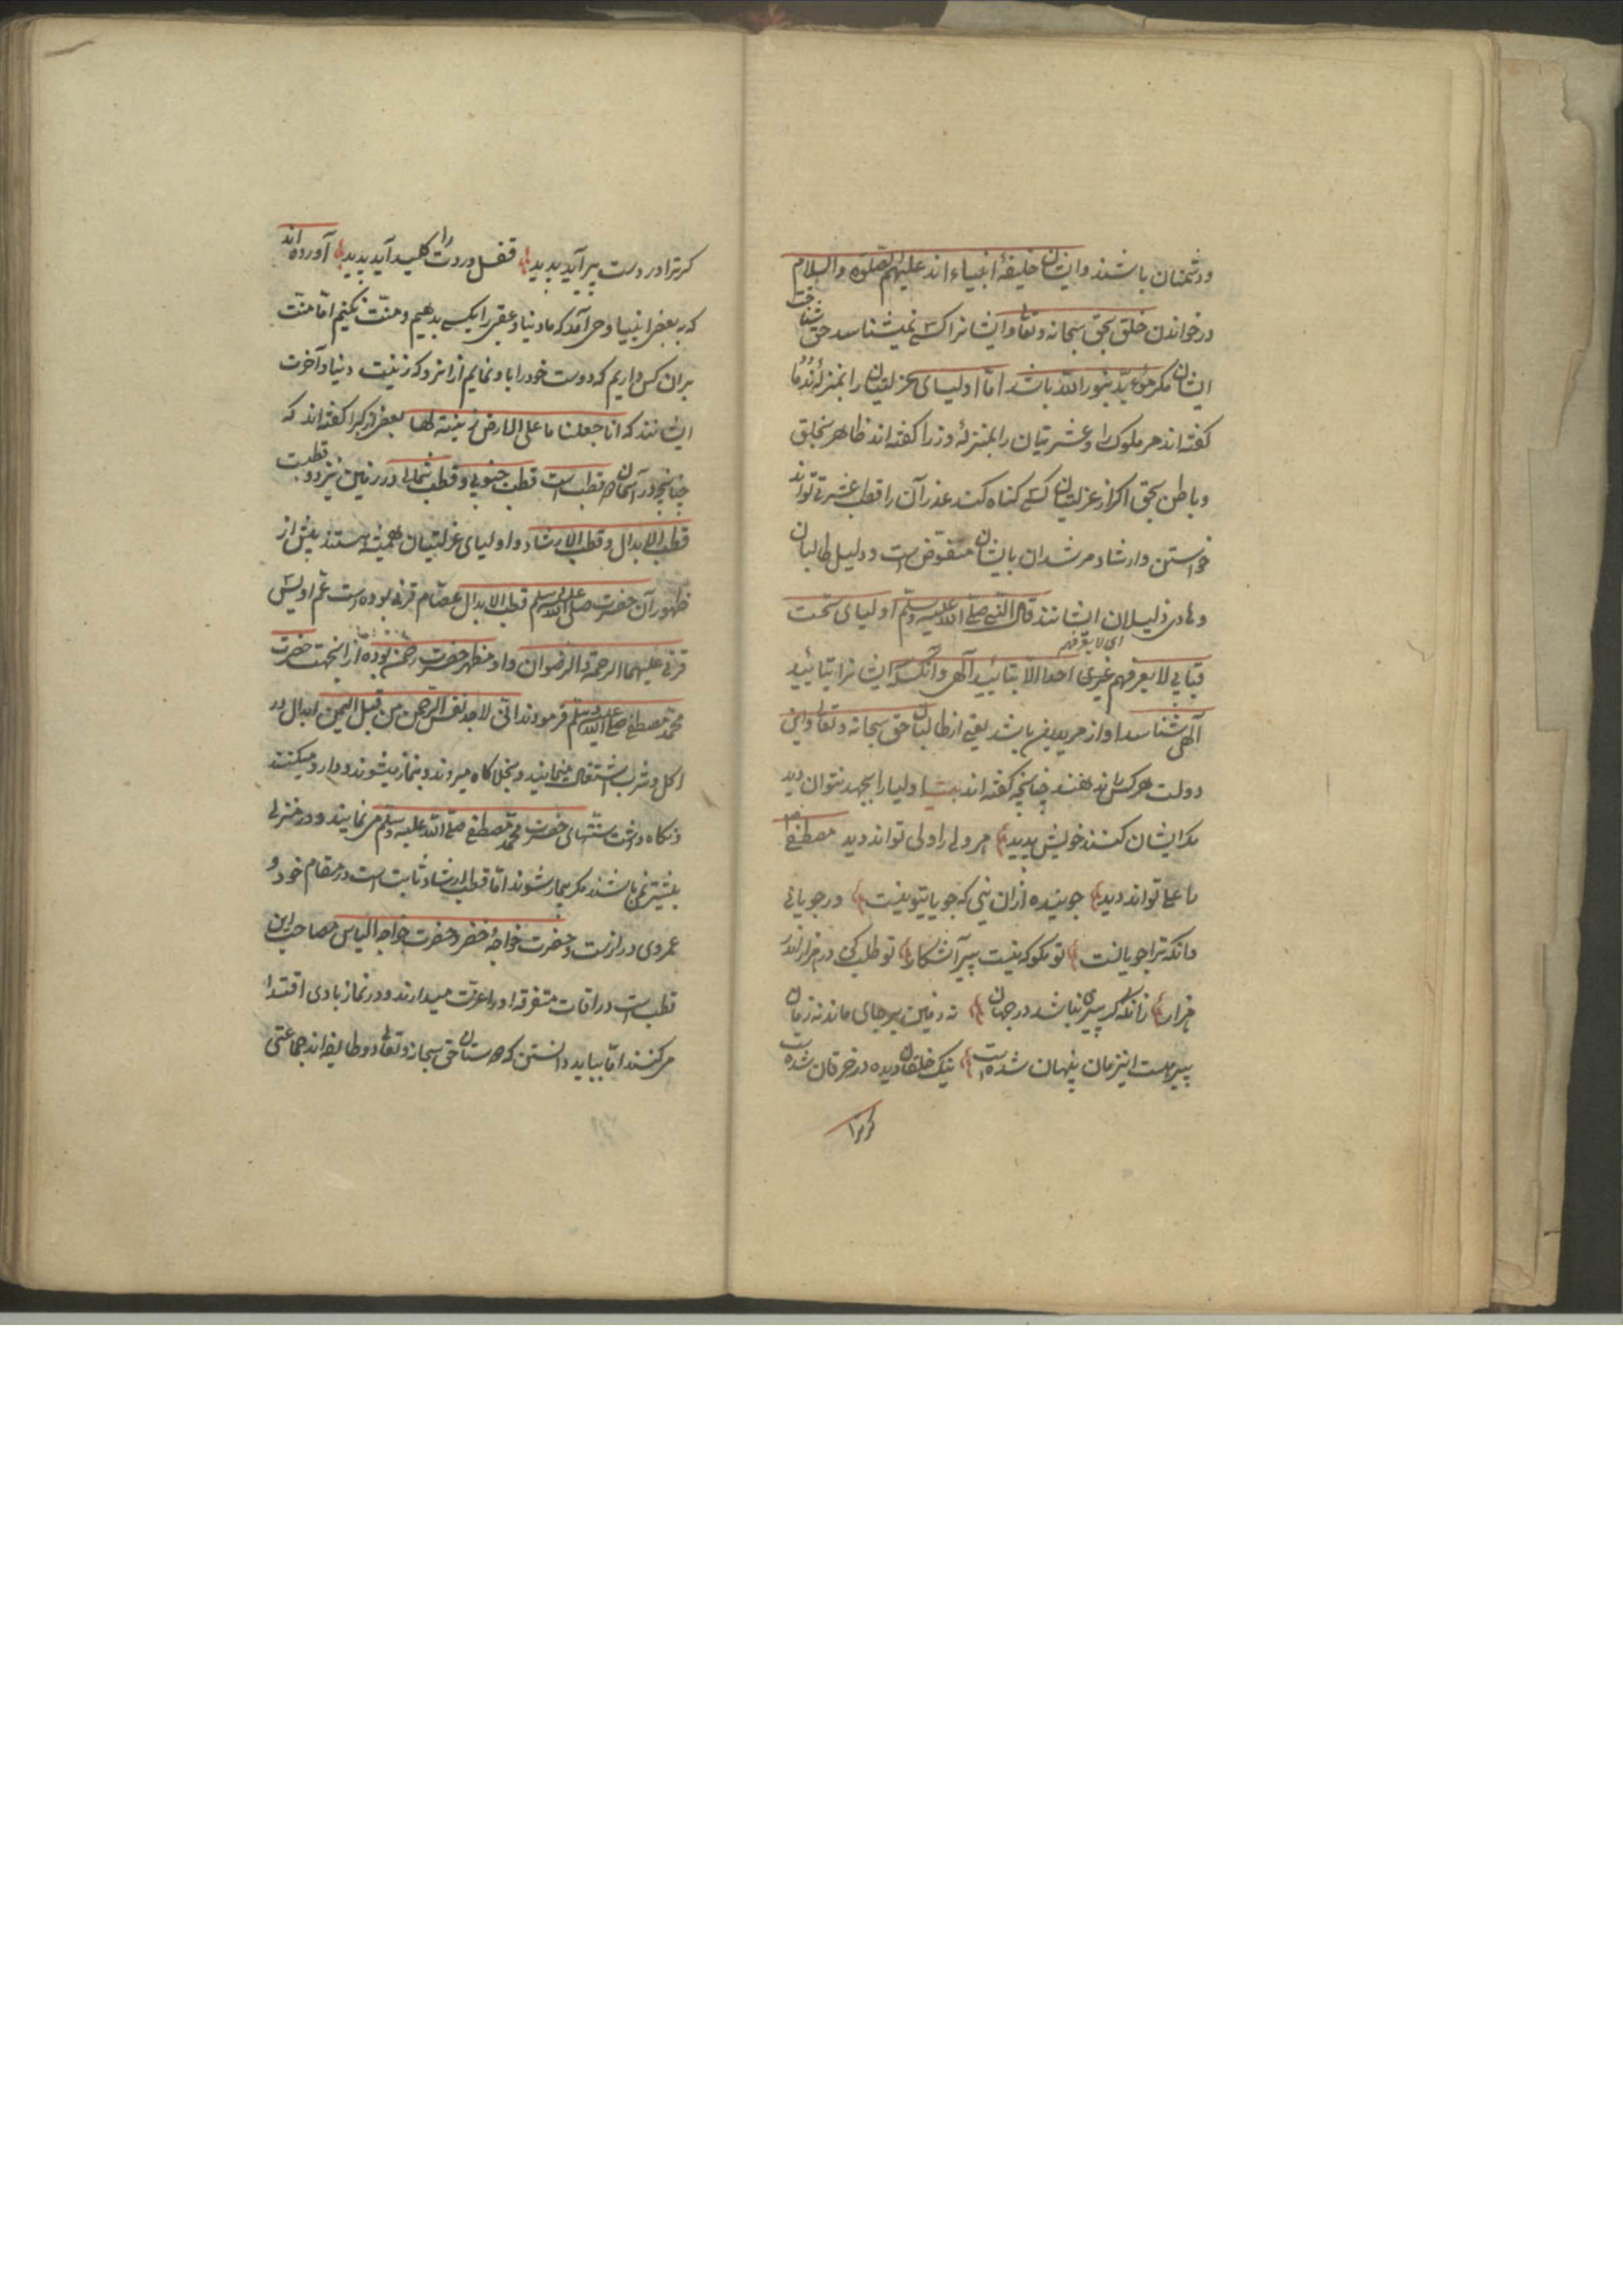 و دشمنان باشند و ایشان خلیفهٔ انبیاء اند علیهم الصلوة والسلام
در خواندن خلق بحق سبحانه و تعالی و ایشانرا کسی نمیشناسد حق شناخت
ایشان مگر مؤید بنور الله باشد اما اولیای عزلتیان را بمنزلهٔ ندما
گفته اند مر ملوک را و عشرتیان را بمنزلهٔ وزرا گفته اند ظاهر بخلق
و باطن بحق اگر از عزلتیان کسی گناه کند عذر آن را قطب عشرتی تواند
خواستن و ارشاد مرشدان بایشان مفوّض است و دلیل طالبان
و هادی ذلیلان ایشانند قال النبی صلی الله علیه وسلم اولیای تحت
ای لا یعرفهم
قبابی لا یعرفهم غیری احدا الا بتائید الهی و آنکسکه ایشانرا بتائید
الهی شناسد او از مریدین باشد یعنی از طالبان حق سبحانه و تعالی و این
دولت هر کس را ندهند چنانچه گفته اند بیت اولیا را بجهد نتوان دید
مگر ایشان کنند خویش پدید مر ولی را ولی تواند دید مصطفی را
علی تواند دید جوینده از ان نیی که جویا بتو نیست در جویائی
مانکه ترا جویا نیست تو مگو که نیست پیر آشکار تو طلب کن در هزار اندر
هزار زانکه گر پیری نباشد در جهان نه زمین بر جای ماند نه زمان
پیر هست اینزمان پنهان شده است ننگ خلقان دیده در خرقان شده است
گر ترا
گر ترا در دست پیر آید پدید قفل دردت را کلید آید پدید آورده اند
که به بعض انبیا وحی آمد که ما دنیا و عقبی را بکسی بدهیم و منّت نکنیم امّا منّت
بران کس داریم که دوست خود را باو نمایم از انرو که زینت دنیا و آخرت
ایشانند که انا جعلنا ما علی الارض زینة لها بعض از کبرا گفته اند که
چنانچه در آسمان دو قطب است قطب جنوبی و قطب شمالی در زمین نیز دو قطبست
قطب الابدال و قطب الارشاد و اولیای عزلتیان همیشه هستند پیش از
ظهور آن حضرت صلی الله علیه وسلم قطب الابدال عصام قرنی بوده است عم اویس
قرنی علیهما الرحمة والرضوان و او مظهر حضرت رحمن بوده از اینجهت حضرت
محمد مصطفی صلی الله علیه وسلم فرمودند انی لاجد نفس الرحمن من قبل الیمن ابدال در
اکل و شرب اشتغال مینمایند و بخلا گاه میروند و بیمار میشوند و دارو میکنند
و نگاه داشت سنتهای حضرت محمد مصطفی صلی الله علیه وسلم می نمایند و در منزلی
بیشتر نمی باشند مگر بیمار شوند اما قطب ارشاد ثابت است در مقام خود و
عمر وی درازست و حضرت خواجهٔ خضر و حضرت خواجه الیاس مصاحب این
قطب است در اوقات متفرقه او را عزت میدارند و در نماز با وی اقتدا
می کنند اما بباید دانستن که دوستان حق سبحانه و تعالی دو طایفه اند جماعتی